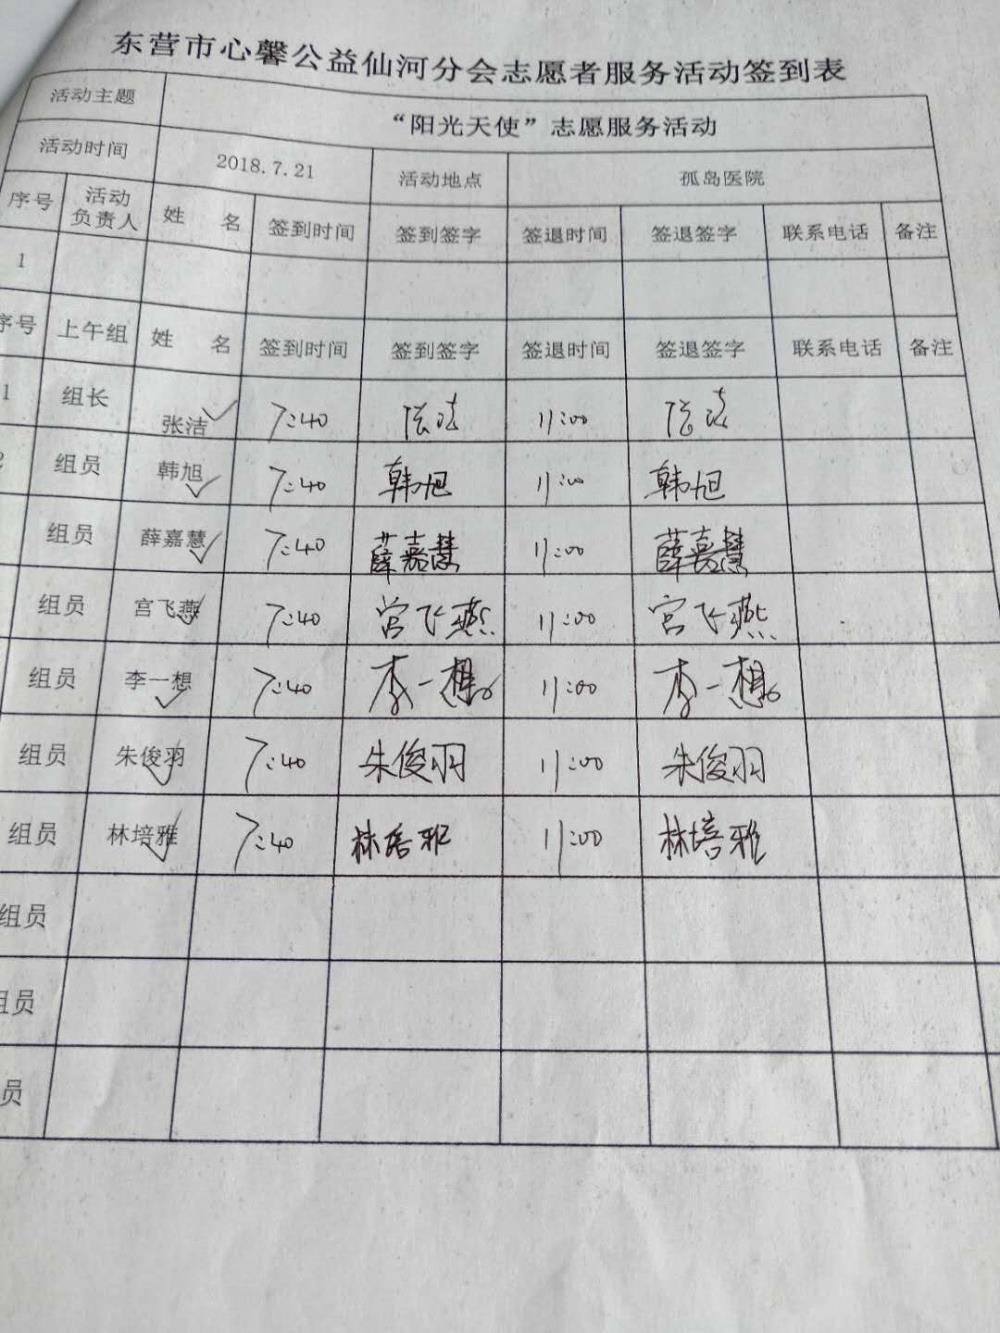 东营市心馨公益仙河分会志愿者服务活动签到表
活动主题 “阳光天使”志愿服务活动
活动时间 2018.7.21 活动地点 孤岛医院
序号 活动负责人 姓 名 签到时间 签到签字 签退时间 签退签字 联系电话 备注
1
序号 上午组 姓 名 签到时间 签到签字 签退时间 签退签字 联系电话 备注
1 组长 张洁 7:40 张洁 11:00 张洁
2 组员 韩旭 7:40 韩旭 11:00 韩旭
组员 薛嘉慧 7:40 薛嘉慧 11:00 薛嘉慧
组员 宫飞燕 7:40 宫飞燕 11:00 宫飞燕
组员 李一想 7:40 李一想 11:00 李一想
组员 朱俊羽 7:40 朱俊羽 11:00 朱俊羽
组员 林培雅 7:40 林培雅 11:00 林培雅
组员
组员
员